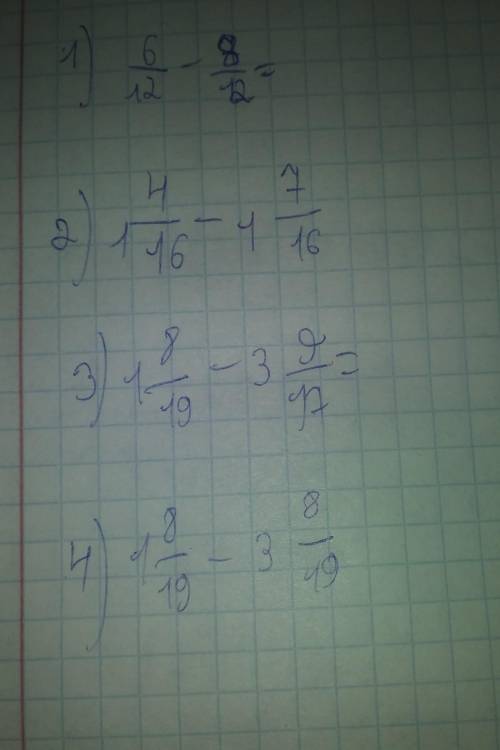 1) 6/12 - 8/12 =
2) 1 4/16 - 1 7/16
3) 1 8/19 - 3 9/17 =
4) 1 8/19 - 3 8/19